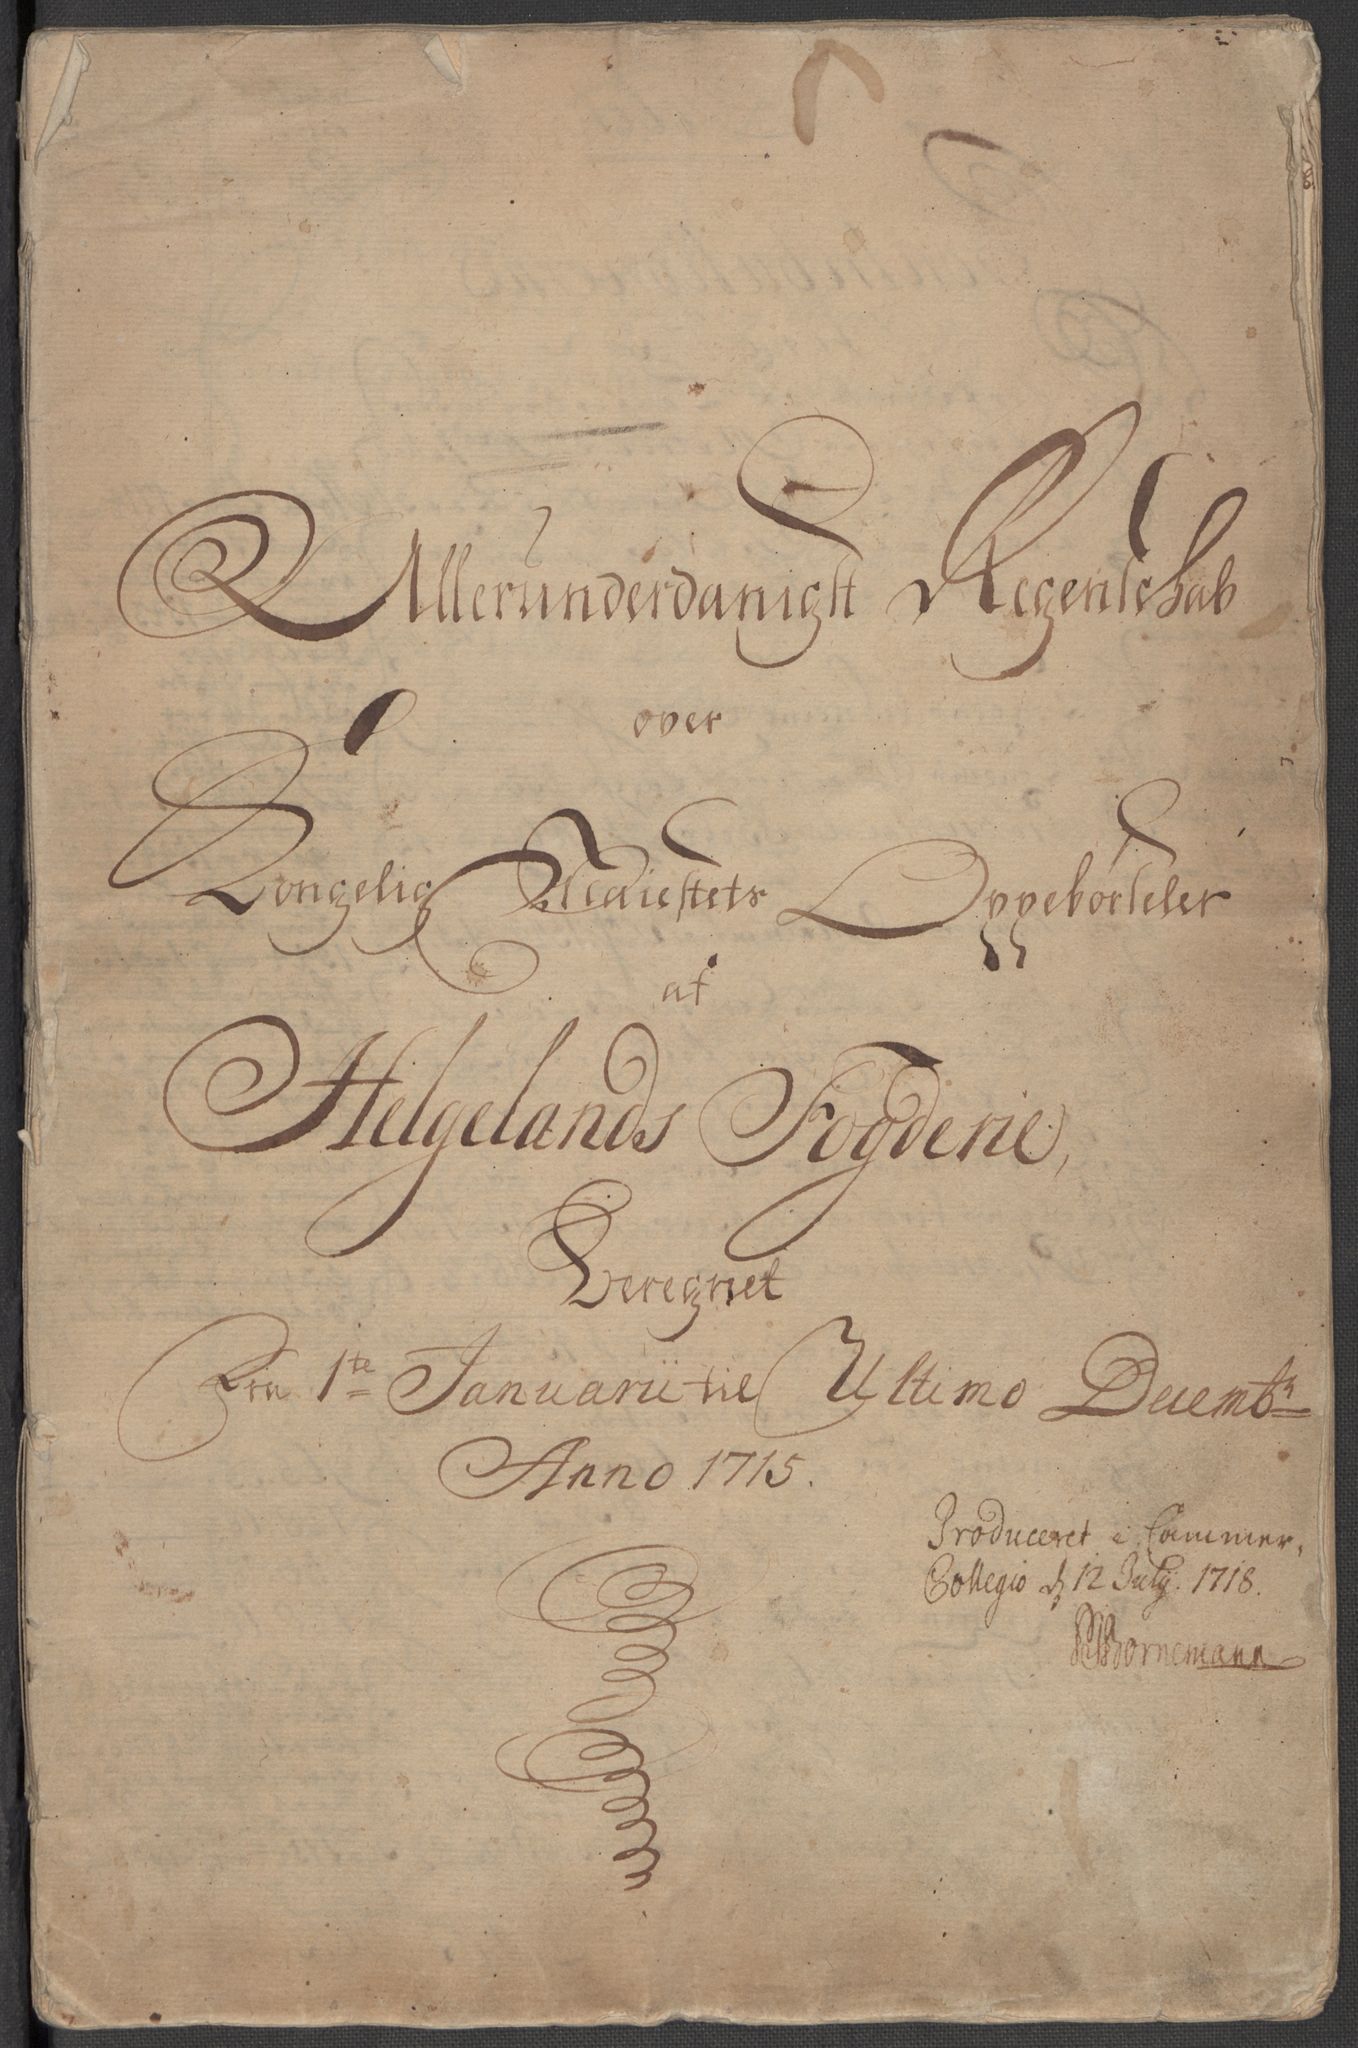 Allerunderdanigst Regenschab
over
Kongelig Maiestets Oppebørseler
af
Helgelands Fogderie,
Beregnet
Fra 1te Januarii til Ultimo Decembr
Anno 1715.
Produceret i Cammer,
Collegio d 12 July. 1718.
Bornemann